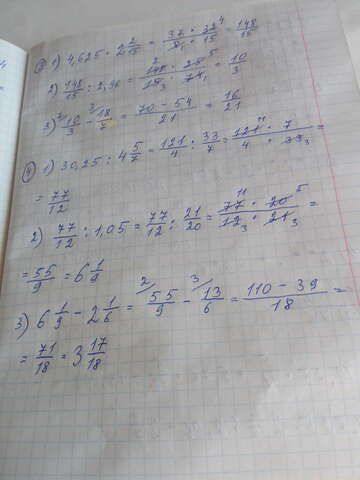 ③ 1) 4,625 · 2 2/15 = 37/8₁ · 32⁴/15 = 148/15
2) 148/15 : 2,96 = 148² · 25⁵ / 15₃ · 74₁ = 10/3
3) ⁷10/3 - ³18/7 = 70 - 54 / 21 = 16/21
④ 1) 30,25 : 4 5/7 = 121/4 : 33/7 = 121¹¹ · 7 / 4 · 33₃ =
= 77/12
2) 77/12 : 1,05 = 77/12 : 21/20 = 77¹¹ · 20⁵ / 12₃ · 21₃ =
= 55/9 = 6 1/9
3) 6 1/9 - 2 1/6 = ²55/9 - ³13/6 = 110 - 39 / 18 =
= 71/18 = 3 17/18